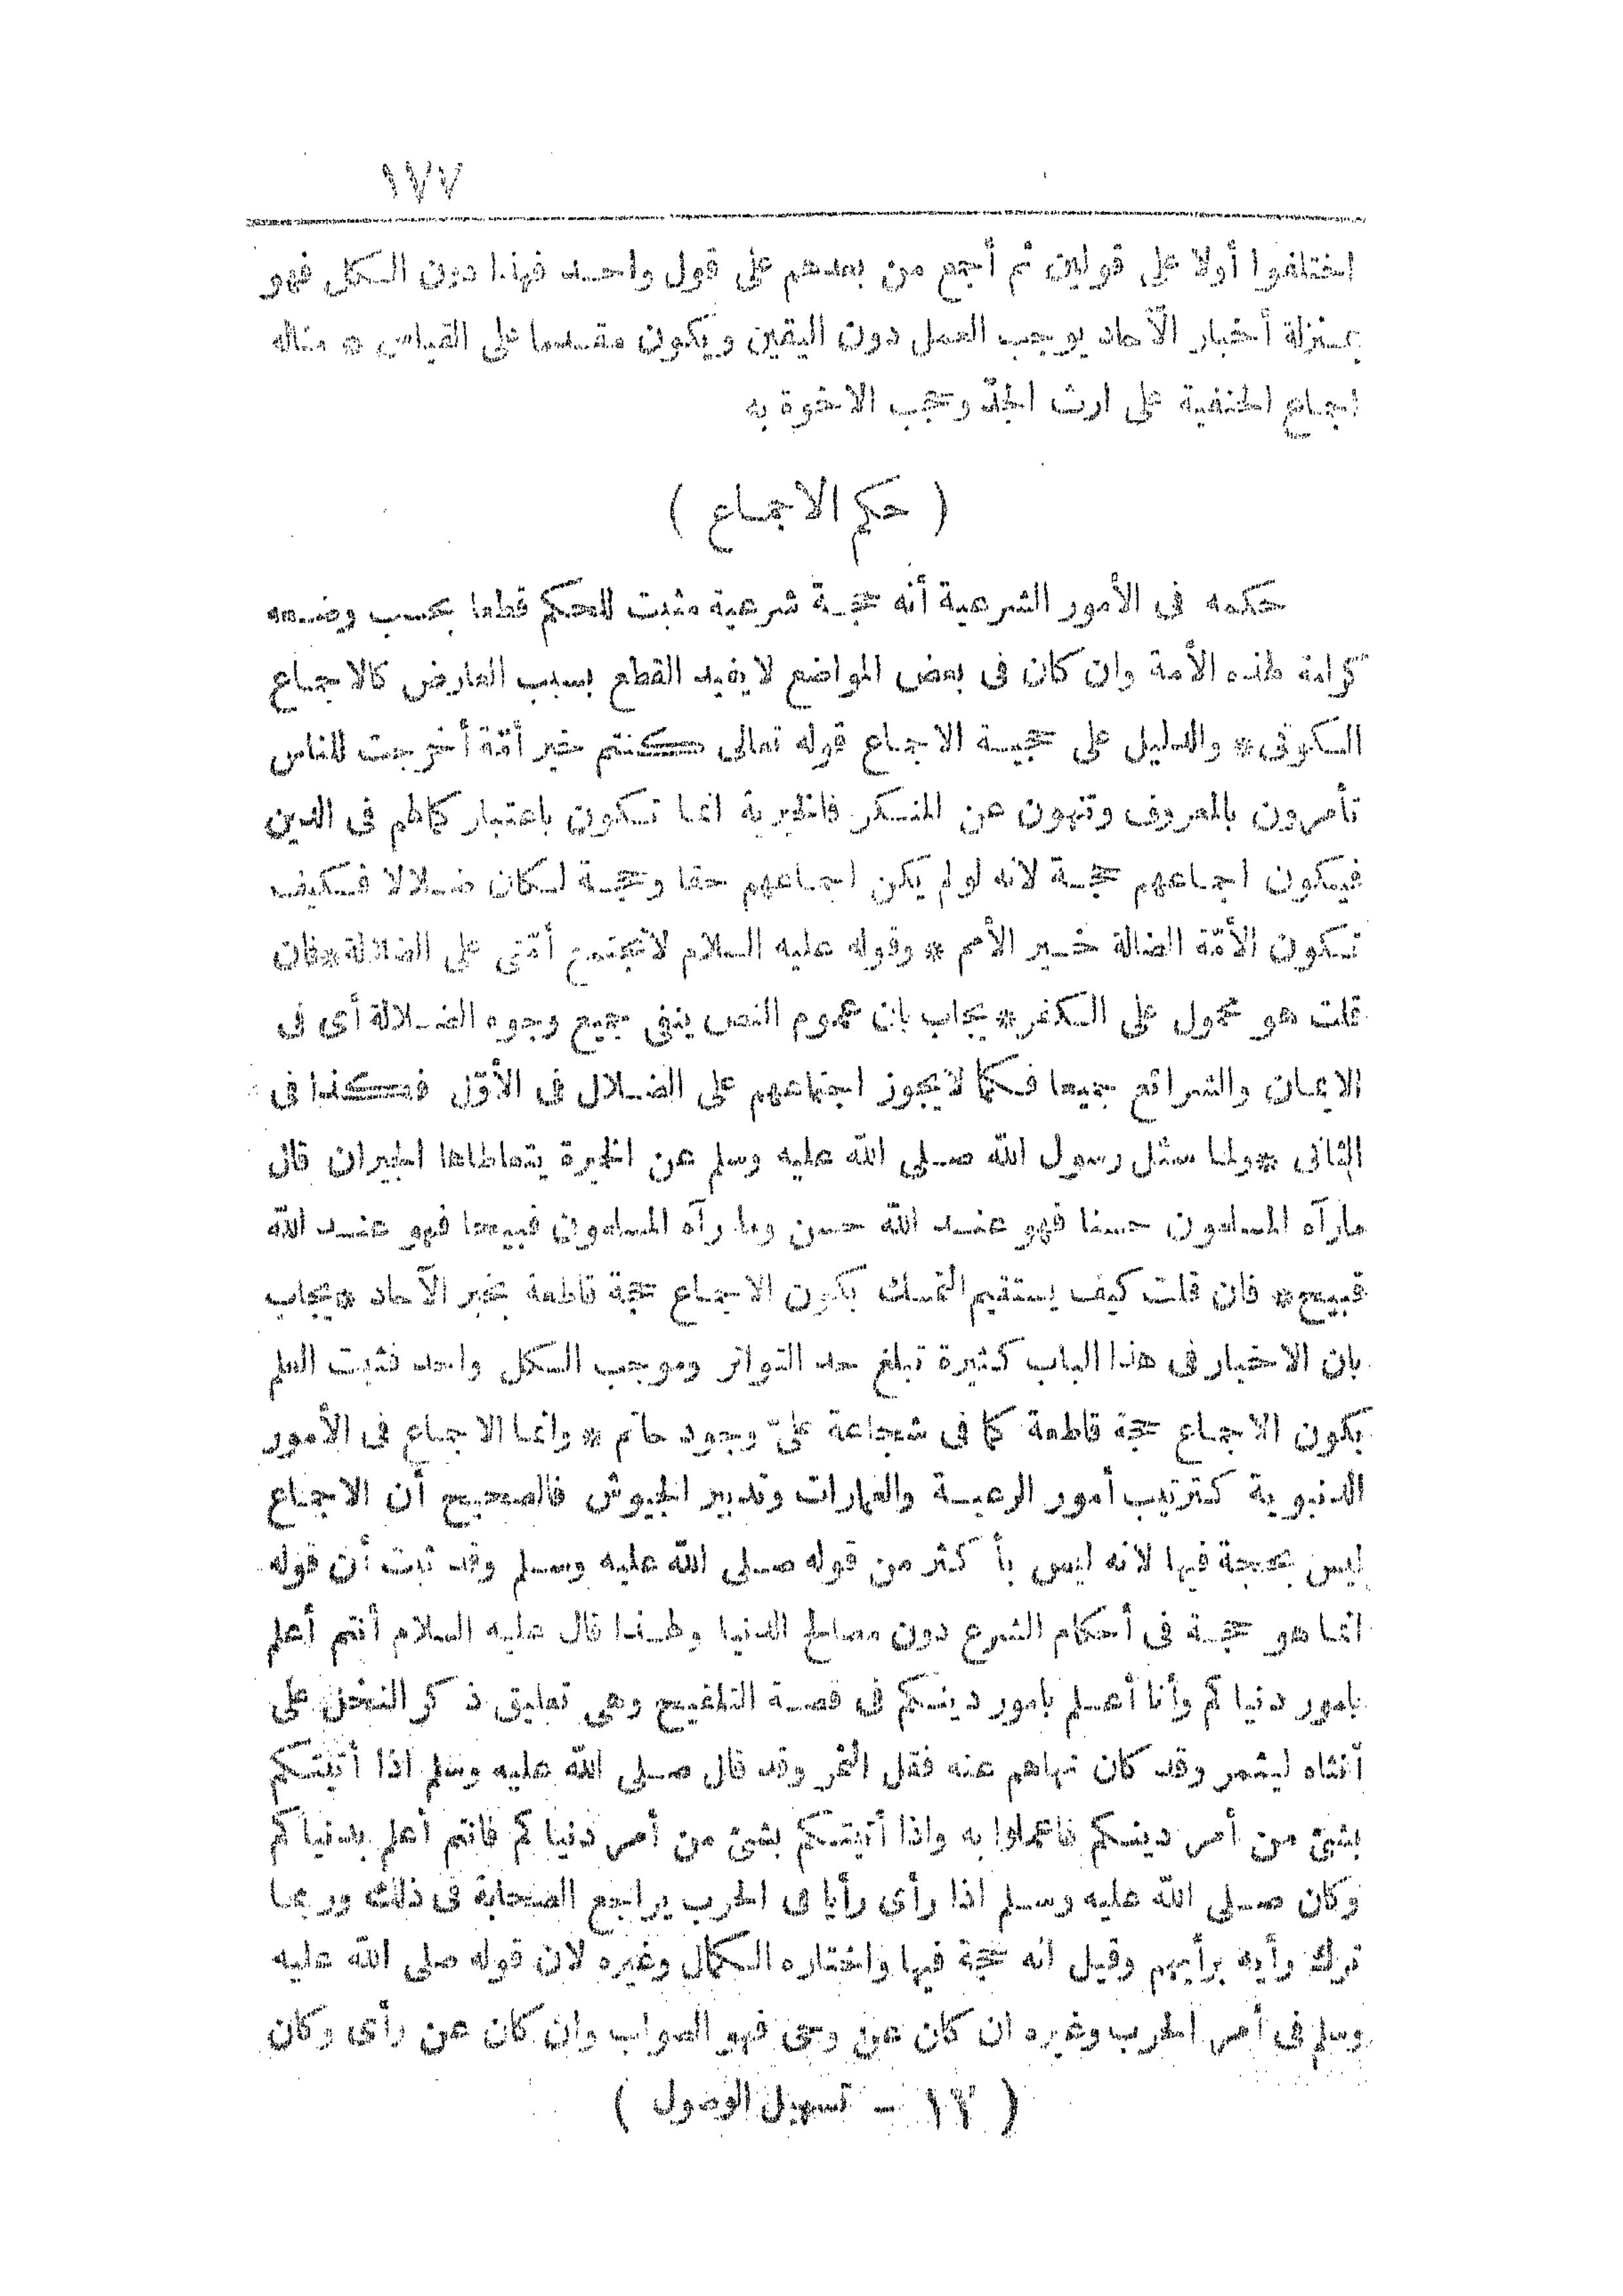 ١٧٧
اختلفوا أولا على قولين ثم أجمع من بعدهم على قول واحد فهذا دون الكل فهو
بمنزلة أخبار الآحاد يوجب العمل دون اليقين ويكون مقدما على القياس * مثاله
اجماع الحنفية على ارث الجدّ وحجب الاخوة به
( حكم الاجماع )
حكمه فى الأمور الشرعية أنه حجة شرعية مثبت للحكم قطعا بحسب وضعه
كرامة لهذه الأمة وان كان فى بعض المواضع لا يفيد القطع بسبب العارض كالاجماع
السكوتى * والدليل على حجية الاجماع قوله تعالى كنتم خير أمّة أخرجت للناس
تأمرون بالمعروف وتنهون عن المنكر فالخيرية انما تكون باعتبار كمالهم فى الدين
فيكون اجماعهم حجة لانه لو لم يكن اجماعهم حقا وحجة لكان ضلالا فكيف
تكون الأمّة الضالة خير الأمم * وقوله عليه السلام لا تجتمع أمّتى على الضلالة * فان
قلت هو محمول على الكفر * يجاب بان عموم النص ينفى جميع وجوه الضلالة أى فى
الايمان والشرائع جميعا فكما لا يجوز اجتماعهم على الضلال فى الأوّل فهكذا فى
الثانى * ولما سئل رسول الله صلى الله عليه وسلم عن الخميرة يتعاطاها الجيران قال
مارآه المسلمون حسنا فهو عند الله حسن وما رآه المسلمون قبيحا فهو عند الله
قبيح * فان قلت كيف يستقيم التمسك بكون الاجماع حجة قاطعة بخبر الآحاد * يجاب
بان الاخبار فى هذا الباب كثيرة تبلغ حد التواتر وموجب الكل واحد فثبت العلم
بكون الاجماع حجة قاطعة كما فى شجاعة علىّ وجود حاتم * وانما الاجماع فى الأمور
الدنيوية كترتيب أمور الرعية والعمارات وتدبير الجيوش فالصحيح أن الاجماع
ليس بحجة فيها لانه ليس بأكثر من قوله صلى الله عليه وسلم وقد ثبت أن قوله
انما هو حجة فى أحكام الشرع دون مصالح الدنيا ولهذا قال عليه السلام أنتم أعلم
بامور دنياكم وأنا أعلم بامور دينكم فى قصة التلقيح وهى تعليق ذكر النخل على
أنثاه ليثمر وقد كان نهاهم عنه فقل الثمر وقد قال صلى الله عليه وسلم اذا أتيتكم
بشئ من أمر دينكم فاعملوا به واذا أتيتكم بشئ من أمر دنياكم فانتم أعلم بدنياكم
وكان صلى الله عليه وسلم اذا رأى رأيا فى الحرب يراجع الصحابة فى ذلك وربما
ترك رأيه برأيهم وقيل انه حجة فيها واختاره الكمال وغيره لان قوله صلى الله عليه
وسلم فى أمر الحرب وغيره ان كان عن وحى فهو الصواب وان كان عن رأى وكان
( ١٢ - تسهيل الوصول )